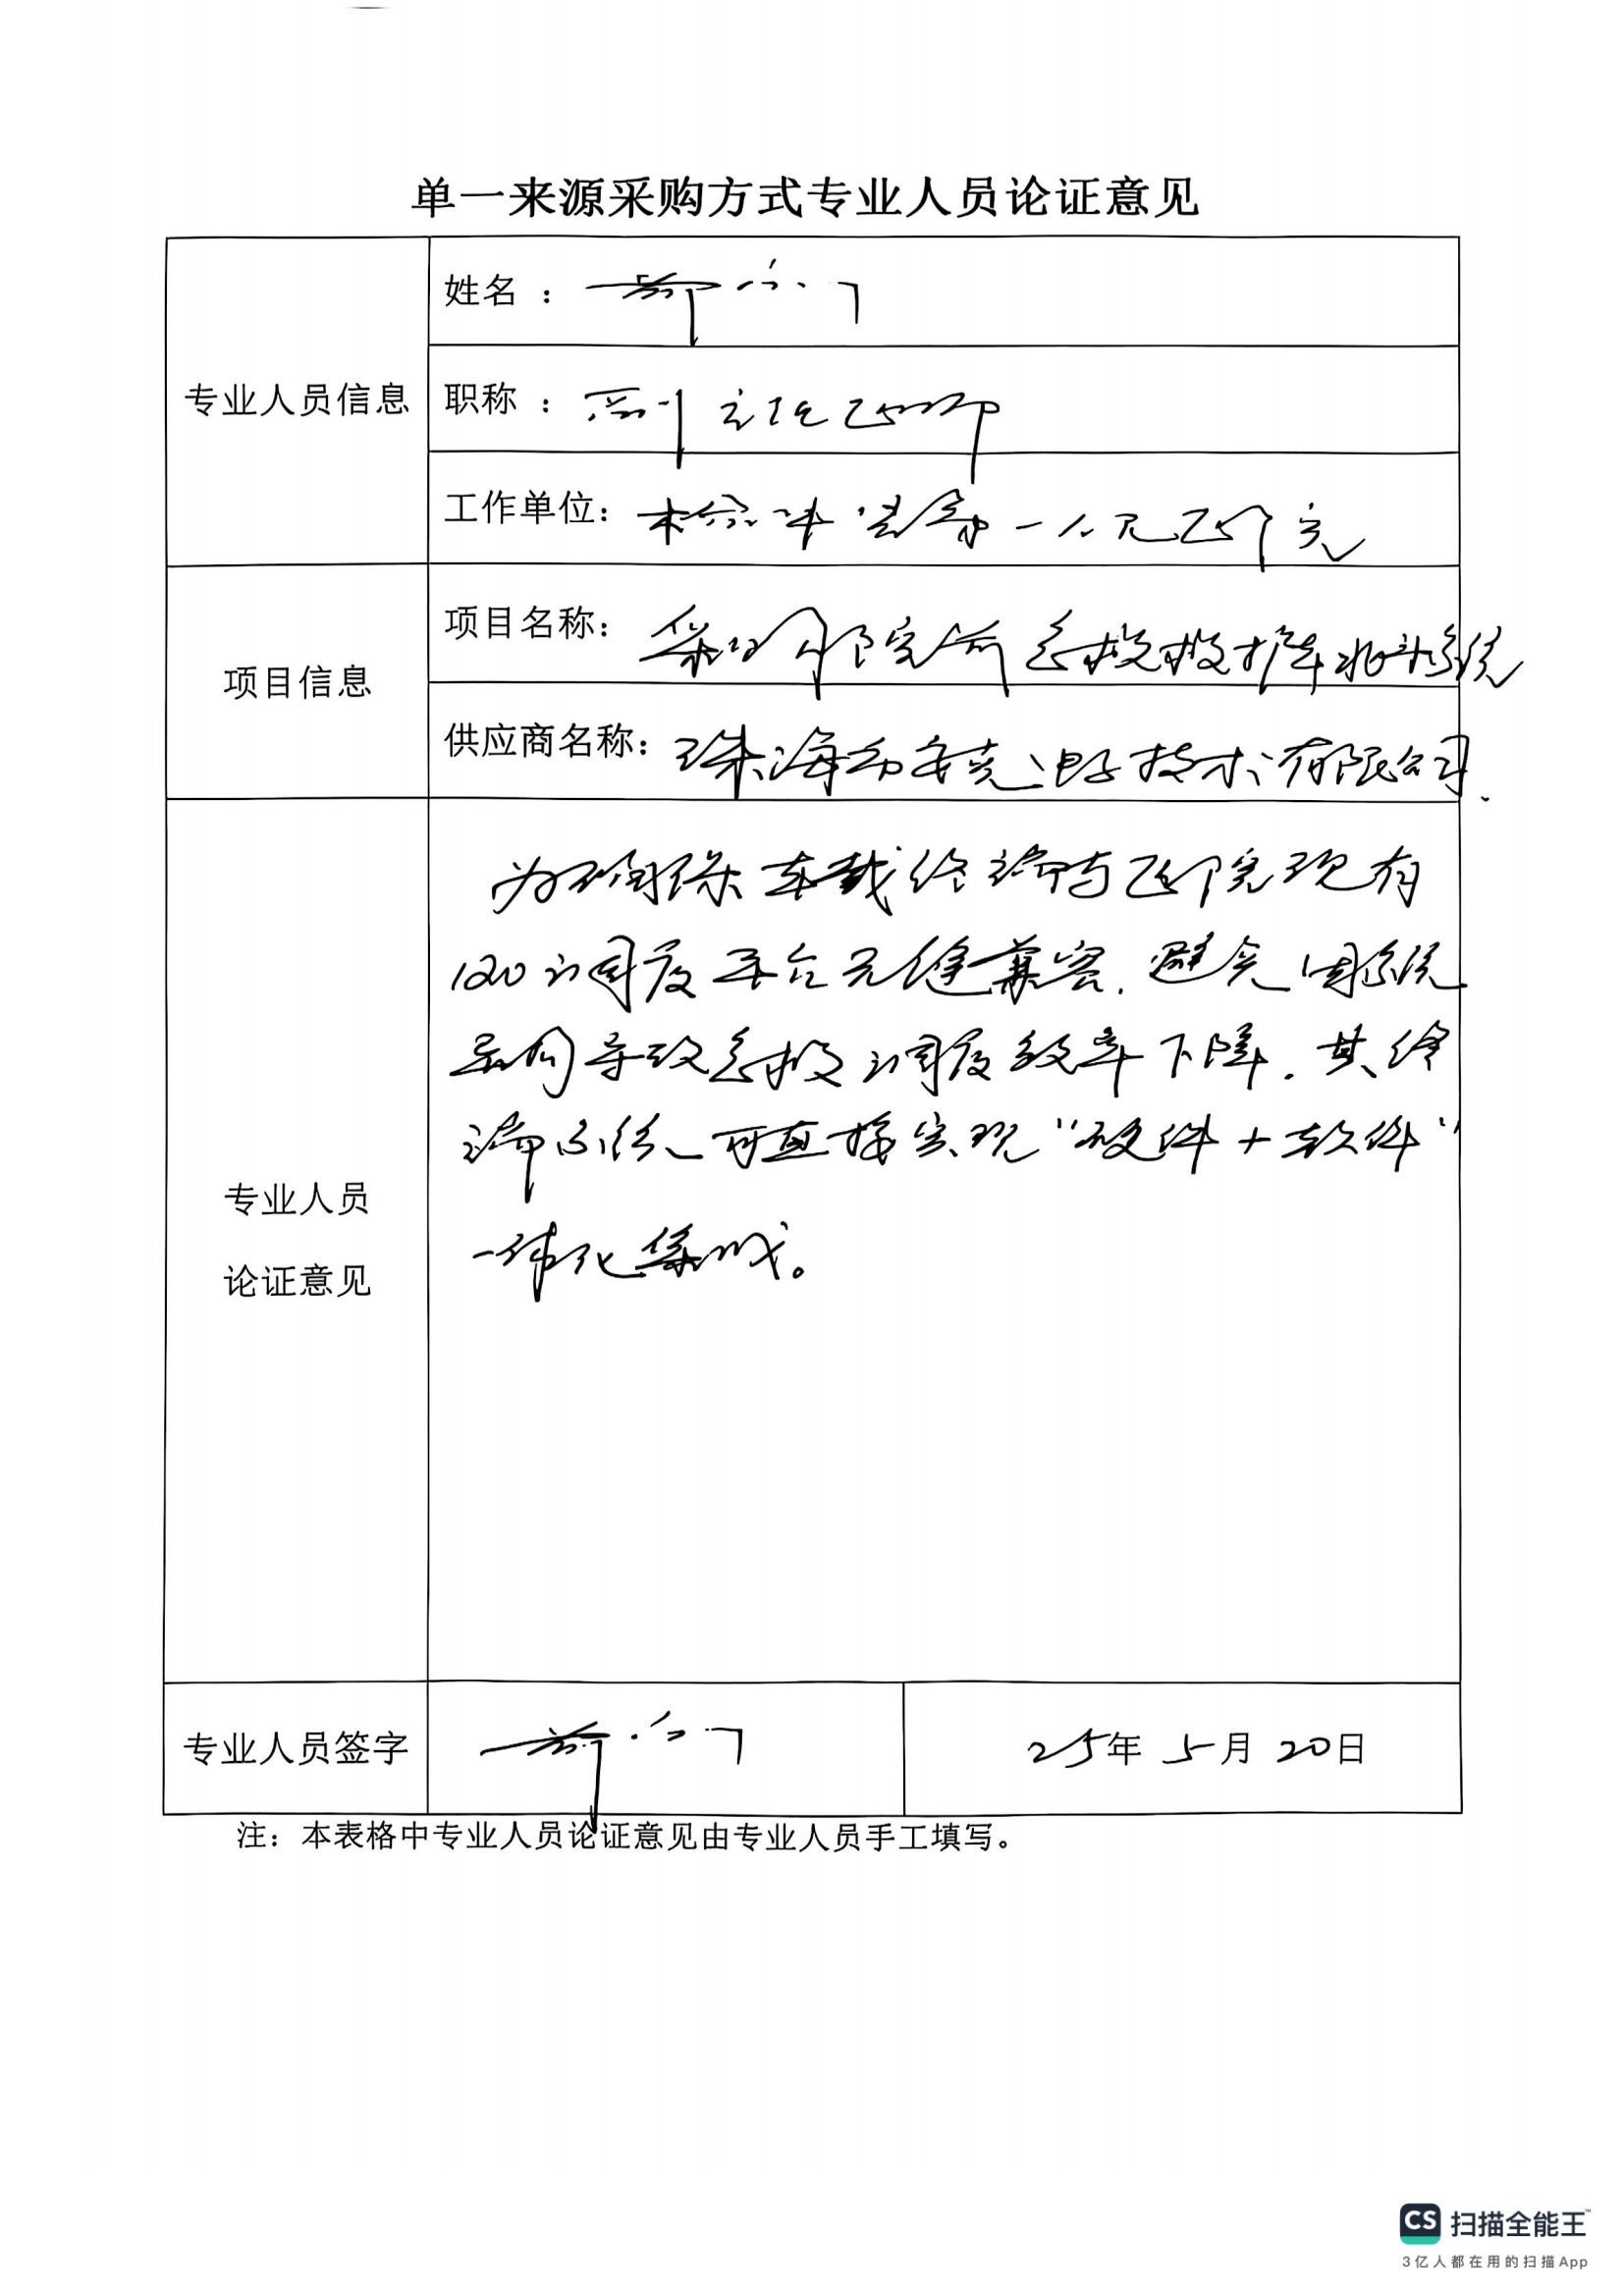 单一来源采购方式专业人员论证意见
专业人员信息
姓名：
职称：副主任医师
工作单位：第一人民医院
项目信息
项目名称：采购院前急救
供应商名称：珠海 电子技术有限公司
专业人员
论证意见
为确保车载终端与医院现有
120调度平台无缝兼容，避免因系统
异构导致急救调度效率下降．其终
端系统可直接实现“硬件+软件”
一体化集成。
专业人员签字
25年 5月 20日
注：本表格中专业人员论证意见由专业人员手工填写。
CS 扫描全能王™
3亿人都在用的扫描App